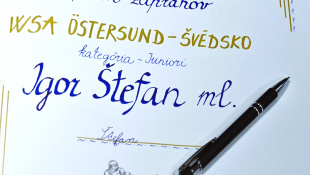 WSA ÖSTERSUND - ŠVÉDSKO
kategória - Juniori
Igor Štefan ml.
Štefan